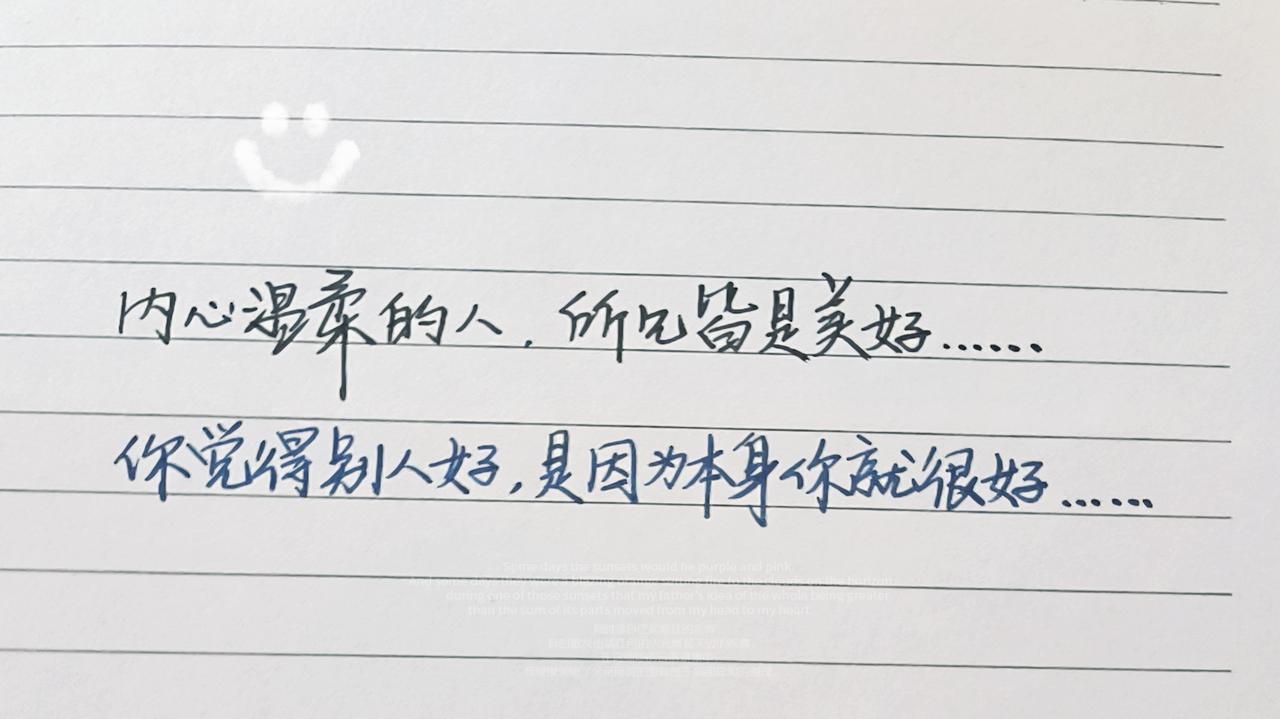 内心温柔的人，所见皆是美好……
你觉得别人好，是因为本身你就很好……
Some days the sunsets would be purple and pink.
during one of those sunsets that my father's idea of the whole being greater
than the sum of its parts moved from my head to my heart.